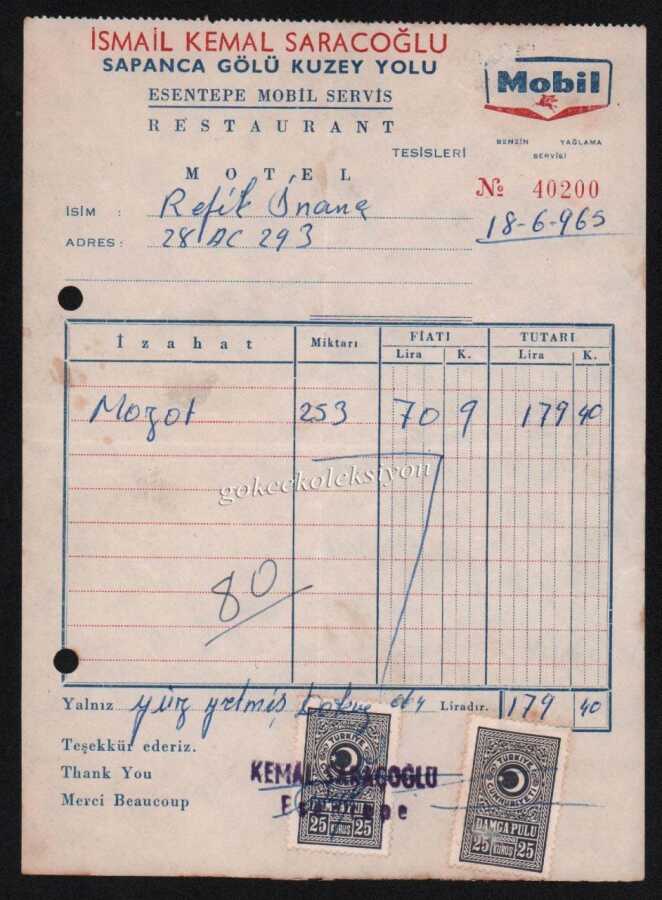 İSMAİL KEMAL SARACOĞLU
SAPANCA GÖLÜ KUZEY YOLU
ESENTEPE MOBİL SERVİS
RESTAURANT
TESİSLERİ
MOTEL
Mobil
BENZİN YAĞLAMA
SERVİSİ
№ 40200
18-6-965
İSİM : Refik İnanç
ADRES : 28 AC 293
İzahat Miktarı FİATI TUTARI
Lira K. Lira K.
Mazot 253 70 9 179 40
gokcekoleksiyon
80
Yalnız yüz yetmiş Liradır. 179 40
Teşekkür ederiz.
Thank You
Merci Beaucoup
KEMAL SARACOĞLU
TÜRKİYE CUMHURİYETİ
DAMGA PULU
25 KURUŞ 25
TÜRKİYE CUMHURİYETİ
DAMGA PULU
25 KURUŞ 25